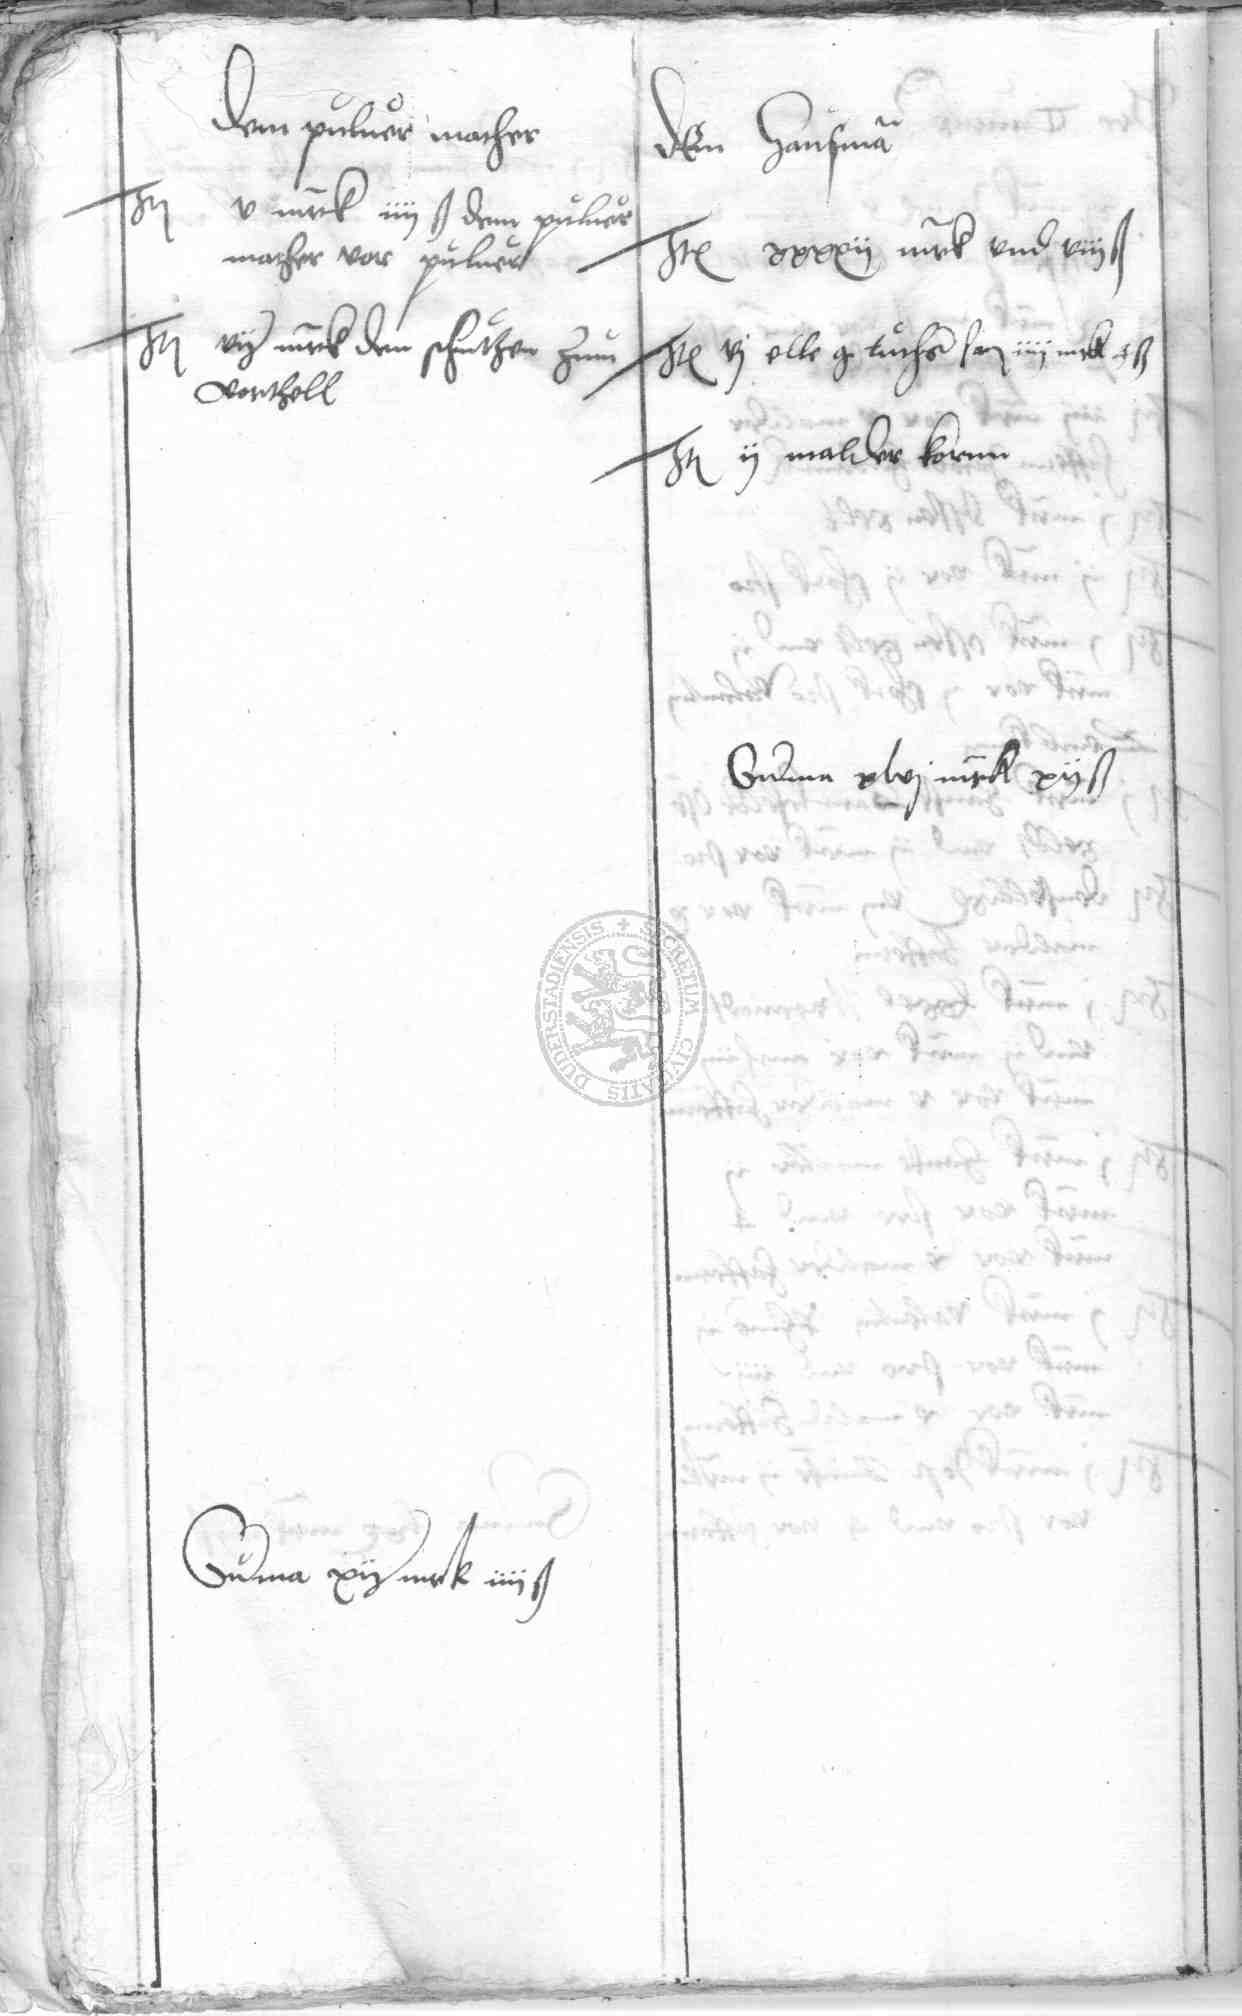 Dem puluer macher
It v mrk iiij ß dem puluer
macher vor puluer
It vij mrk den schutzen zum
vorthell
Summa xij mrk iiij ß
Dem Hausmā
It xxxxij mrk vnd viij ß
It vj elle g tuchs iiij mrk 4 ß
It ij malder kornn
Summa xlvj mrk xij ß
SECRETUM CIVITATIS DUDERSTADIENSIS